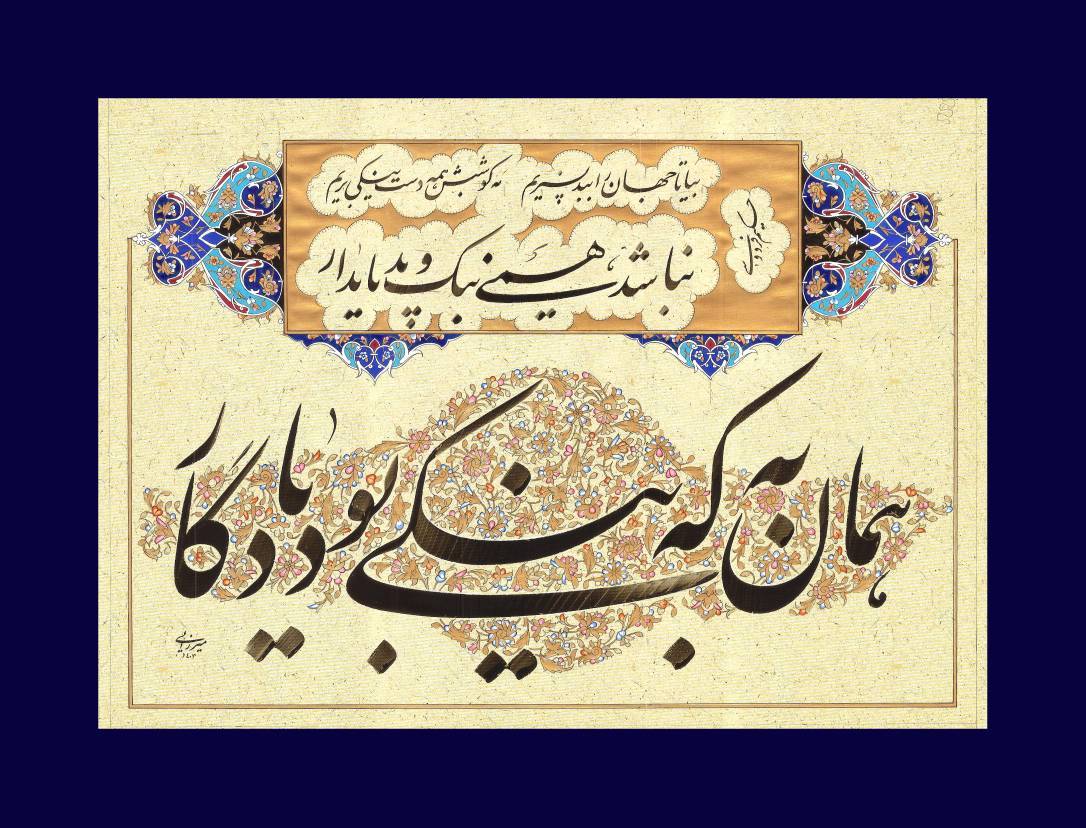 بیا تا جهان را ببد نسپریم به کوشش همه دست نیکی بریم
حکیم فردوسی
نباشد همی نیک و بد پایدار
همان به که نیکی بود یادگار
میرزایی